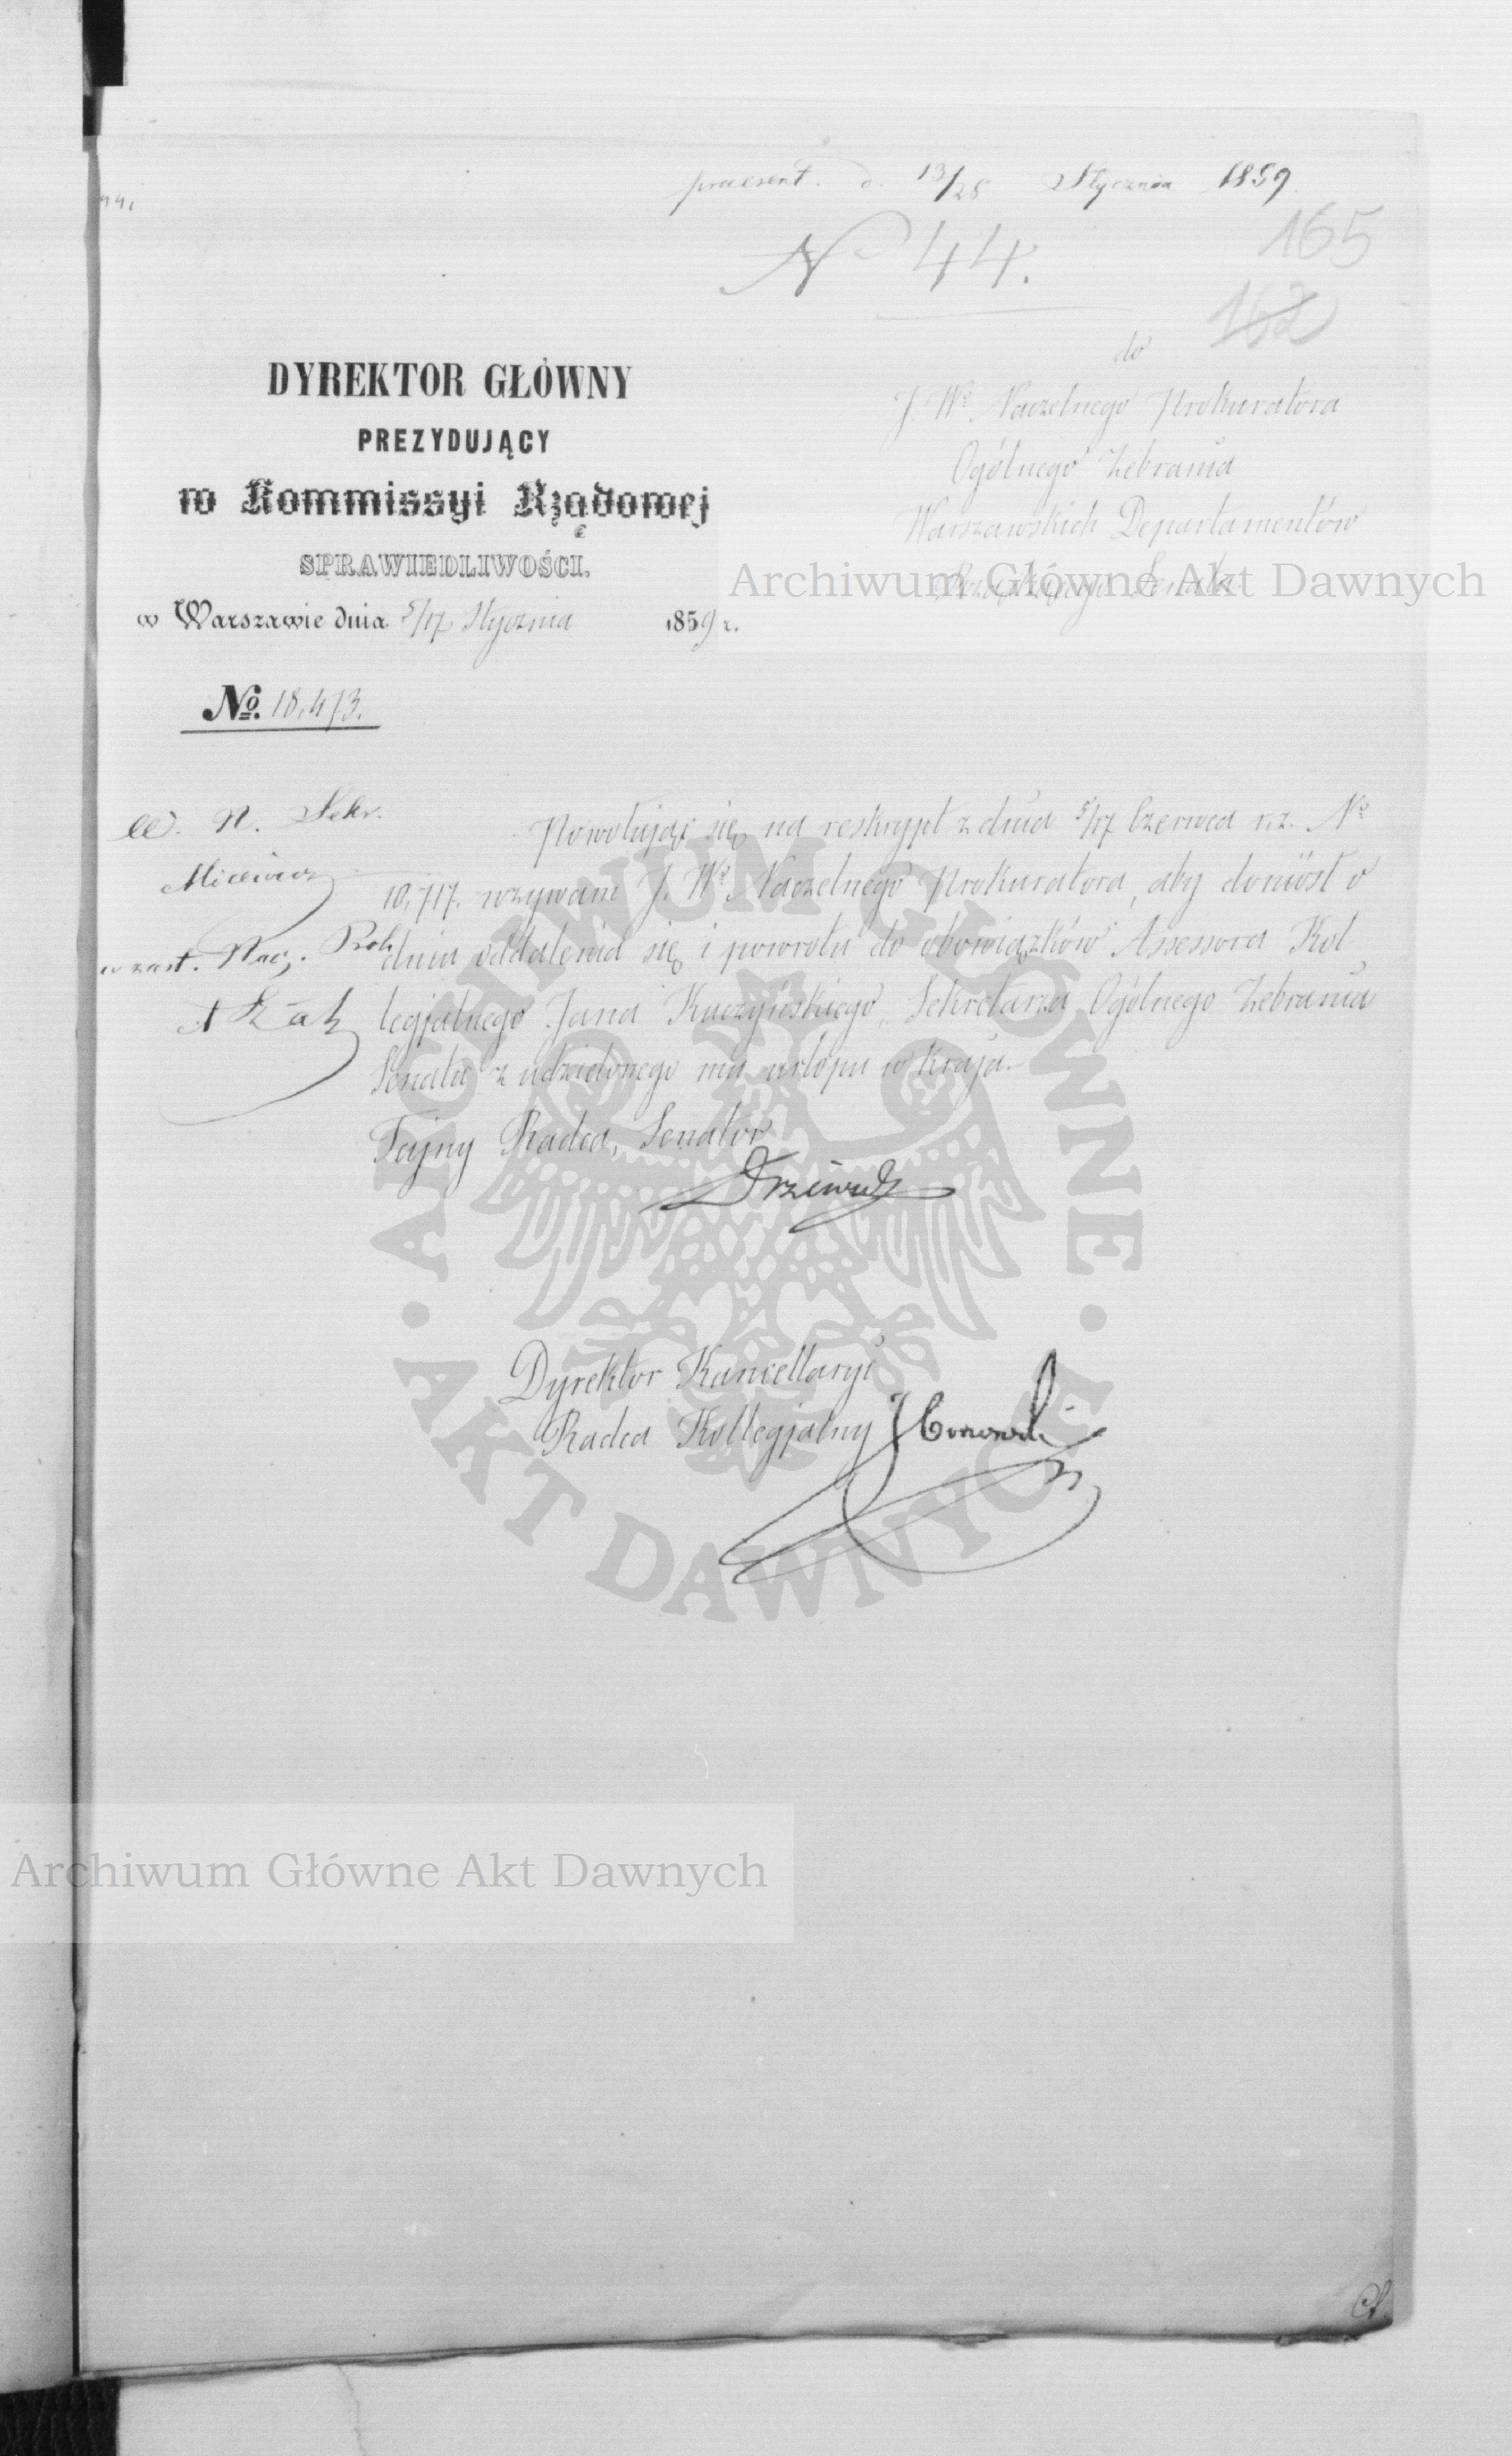 praesent. d. 13/25 Stycznia 1859.
№ 44.
165
162
do
J. Wo. Naczelnego Prokuratora
Ogólnego Zebrania
Warszawskich Departamentów
Rządzącego Senatu
DYREKTOR GŁÓWNY
PREZYDUJĄCY
w Kommissyi Rządowej
SPRAWIEDLIWOŚCI.
w Warszawie dnia 5/17 Stycznia 1859 r.
No. 18,473.
W. N. Sekr.
w zast. Nacz. Prok.
Powołując się na reskrypt z dnia 5/17 Czerwca r. z. No
10,717. wzywam J. Wo Naczelnego Prokuratora, aby doniósł o
dniu oddalenia się i powrotu do obowiązków Assessora Kol-
legjalnego Jana Kuczyńskiego, Sekretarza Ogólnego Zebrania
Senatu z udzielonego mu urlopu w kraju.
Tajny Radca, Senator
Drzewiecki
Dyrektor Kancellaryi
Radca Kollegjalny
Archiwum Główne Akt Dawnych
ARCHIWUM GŁÓWNE
AKT DAWNYCH
Archiwum Główne Akt Dawnych